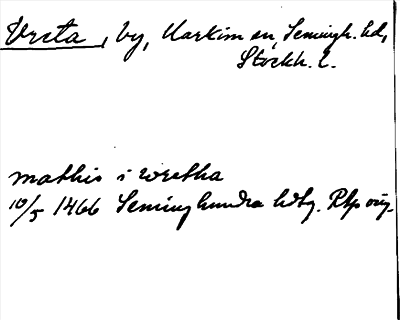 Vreta, by, Markim sn, Semingh. hd,
Stockh. l.
mathis i wretha
10/5 1466 Seminghundra hdtg. Rkp orig.